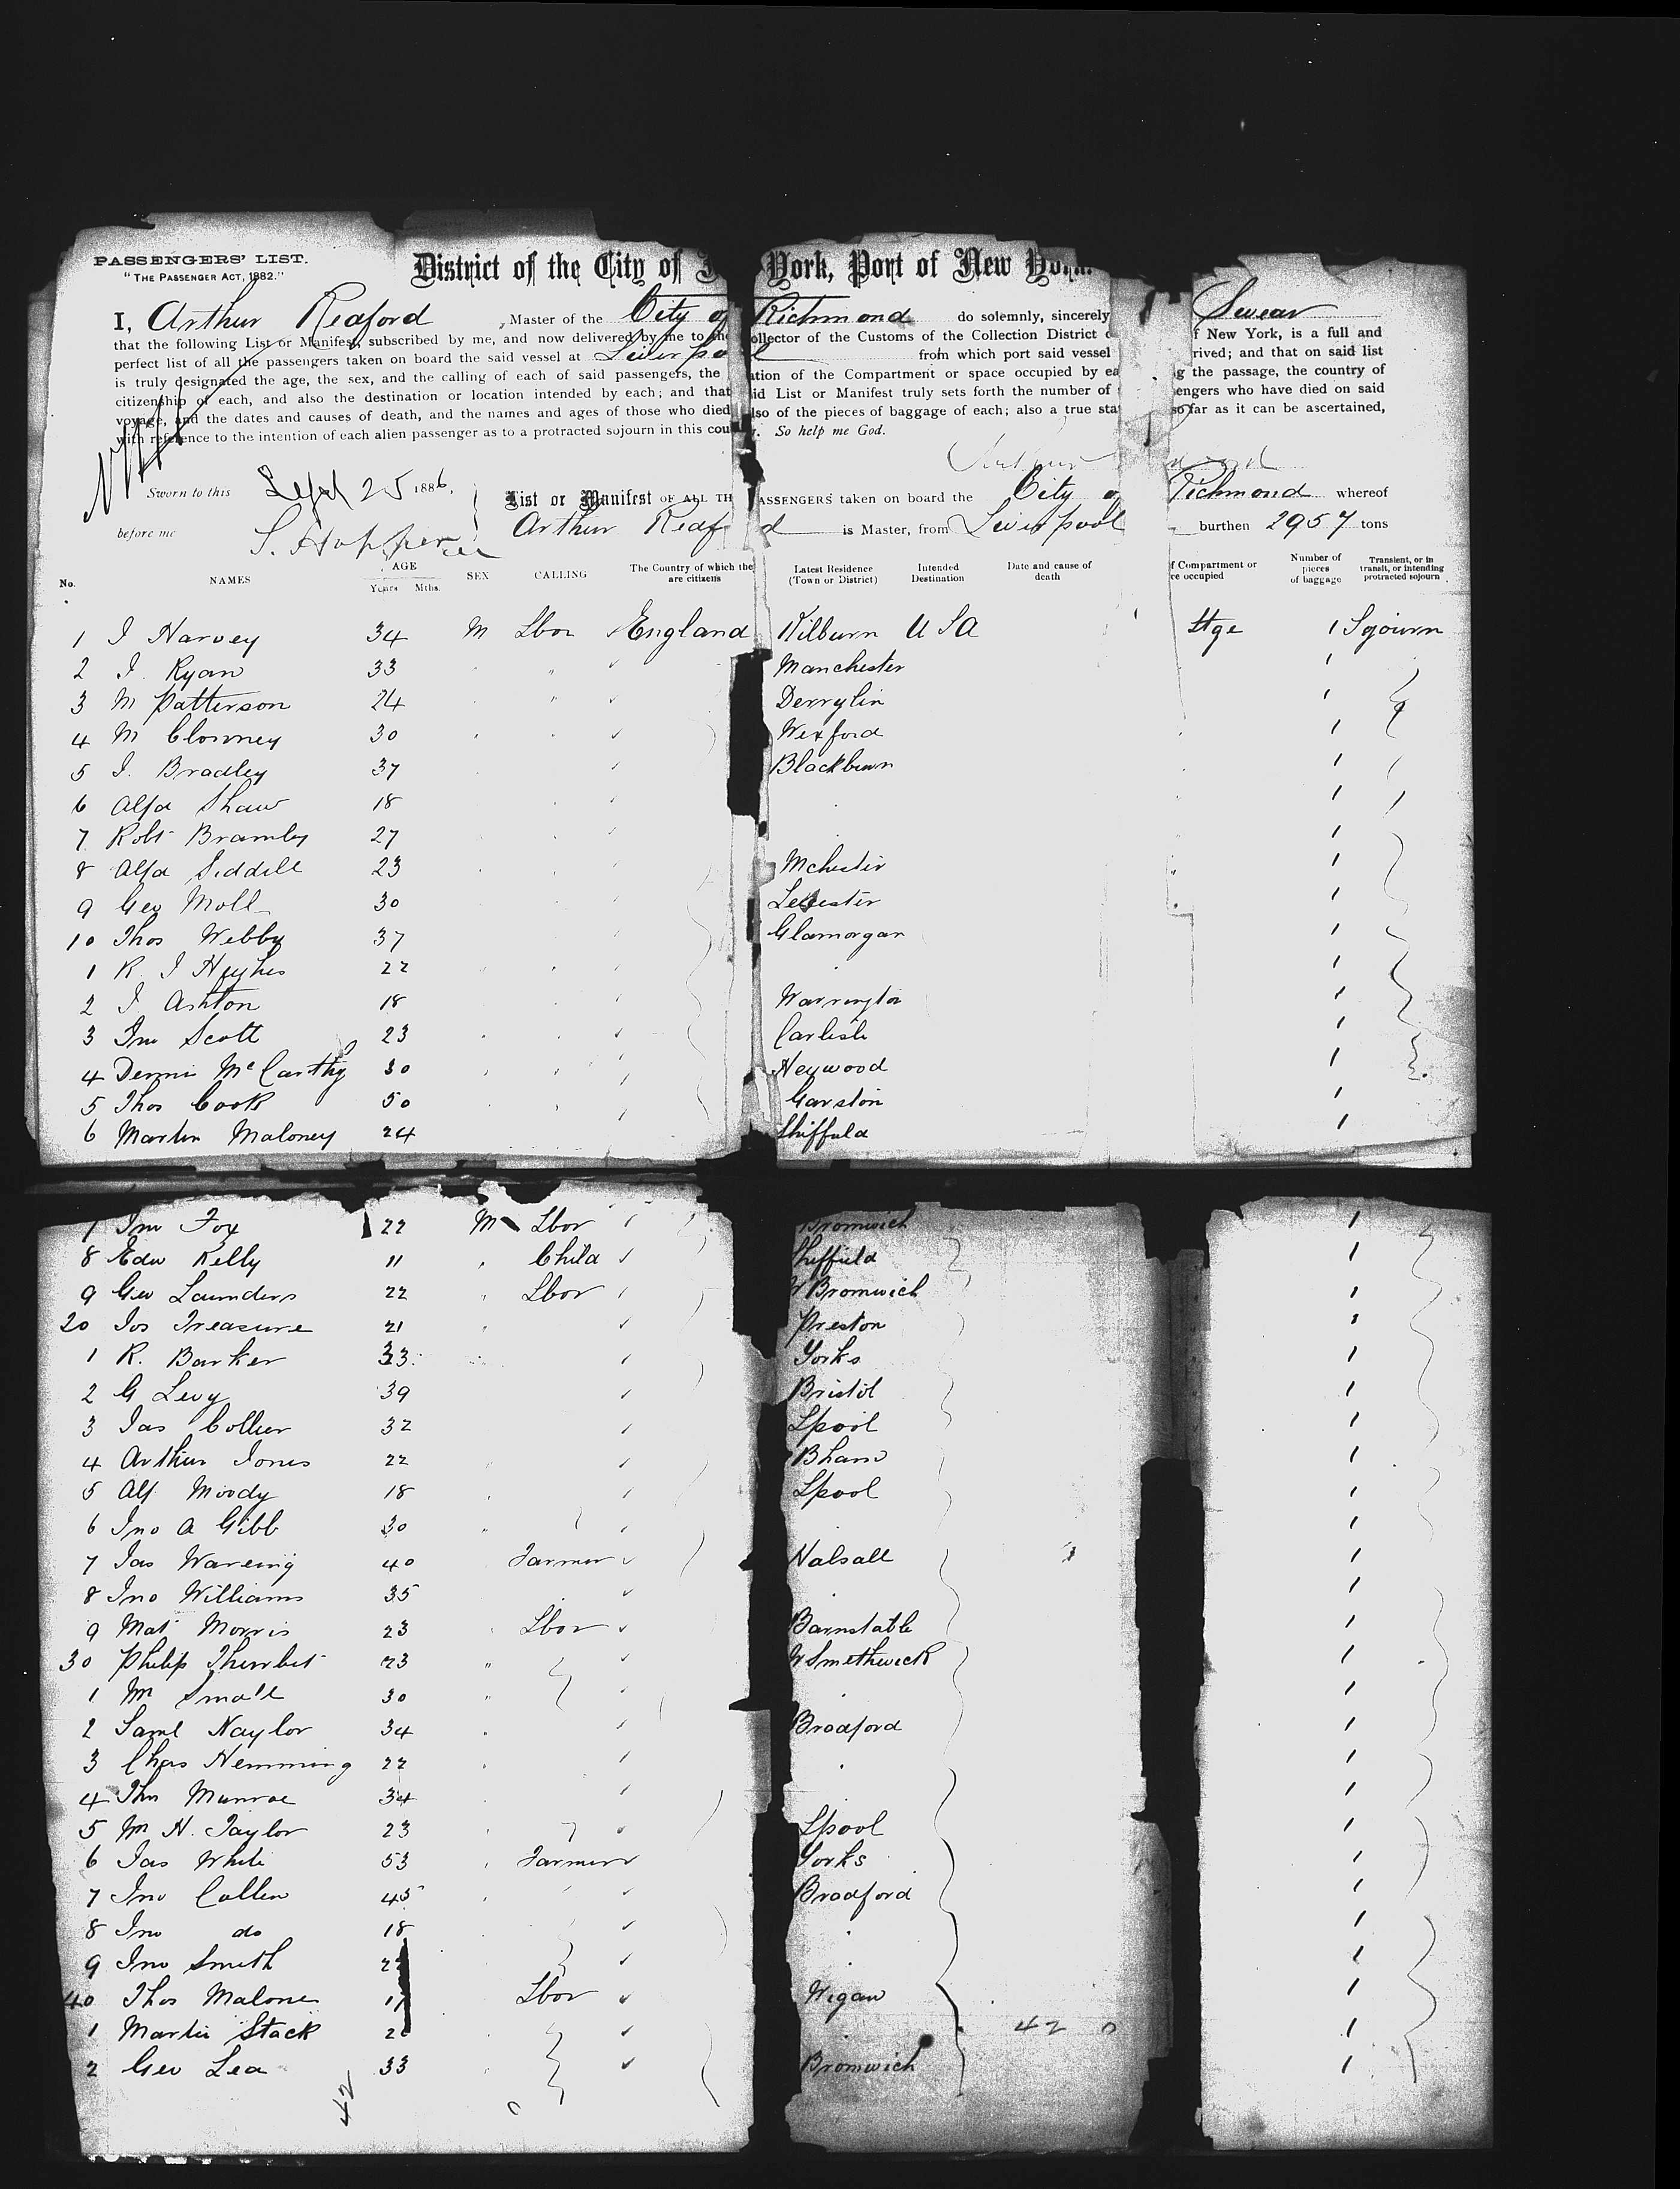 PASSENGERS' LIST.
"THE PASSENGER ACT, 1882."
District of the City of York, Port of New York.
I, Arthur Redford, Master of the City of Richmond do solemnly, sincerely Swear
that the following List or Manifest, subscribed by me, and now delivered by me to the ollector of the Customs of the Collection District f New York, is a full and
perfect list of all the passengers taken on board the said vessel at Liverpool from which port said vessel rived; and that on said list
is truly designated the age, the sex, and the calling of each of said passengers, the ation of the Compartment or space occupied by ea g the passage, the country of
citizenship of each, and also the destination or location intended by each; and that id List or Manifest truly sets forth the number of engers who have died on said
voyage, and the dates and causes of death, and the names and ages of those who died lso of the pieces of baggage of each; also a true sta so far as it can be ascertained,
with reference to the intention of each alien passenger as to a protracted sojourn in this cou . So help me God.
Sworn to this Sept 25 1886,
before me S. Hopper
List or Manifest OF ALL TH ASSENGERS taken on board the City of Richmond whereof
Arthur Redf d is Master, from Liverpool burthen 2957 tons
No. NAMES AGE Years Mths. SEX CALLING The Country of which the are citizens Latest Residence (Town or District) Intended Destination Date and cause of death f Compartment or ce occupied Number of pieces of baggage Transient, or in transit, or intending protracted sojourn
1 J Harvey 34 M Lbor England Kilburn U S A Stge 1 Sojourn
2 J. Ryan 33 " Manchester 1
3 M Patterson 24 " Derrylin 1
4 M Clowney 30 Wexford 1
5 J. Bradley 37 Blackburn 1
6 Alfd Shaw 18 1
7 Robt Bramley 27 1
8 Alfd Siddell 23 Mchester 1
9 Geo Moll 30 Leicester 1
10 Thos Webby 37 Glamorgan 1
1 R. J Hughes 22 1
2 J Ashton 18 Warrington 1
3 Jno Scott 23 Carlisle 1
4 Dennis McCarthy 30 Heywood 1
5 Thos Cook 50 Garston 1
6 Martin Maloney 24 Sheffield 1
7 Jno Fox 22 M Lbor Bromwich 1
8 Edw Kelly 11 Child Sheffield 1
9 Geo Launders 22 Lbor W Bromwich 1
20 Jos Treasure 21 Preston 1
1 R. Barker 33 Yorks 1
2 G Levy 39 Bristol 1
3 Jas Collier 32 Lpool 1
4 Arthur Jones 22 Bham 1
5 Alf Moody 18 Lpool 1
6 Jno A Gibb 30 1
7 Jas Wareing 40 Farmer Halsall 1
8 Jno Williams 35 1
9 Mat Morris 23 Lbor Barnstable 1
30 Philip 23 " W Smethwick 1
1 Wm Small 30 " 1
2 Saml Naylor 34 Bradford 1
3 Chas Hemming 22 1
4 Munroe 34 1
5 Wm H. Taylor 23 Lpool 1
6 Jas White 53 Farmer Yorks 1
7 Jno Cullen 45 Bradford 1
8 Jno do 18 1
9 Jno Smith 1
40 Thos Malone Lbor Wigan 1
1 Martin Stack 42 0 1
2 Geo Lea 33 Bromwich 1
42